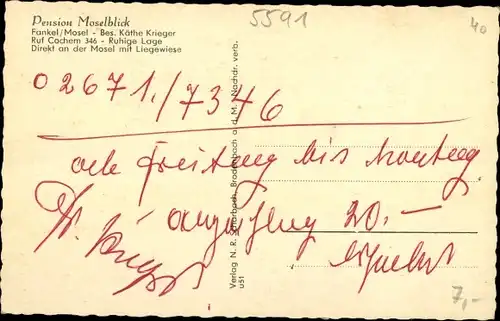 Pension Moselblick
Fankel/Mosel - Bes. Käthe Krieger
Ruf Cochem 346 - Ruhige Lage
Direkt an der Mosel mit Liegewiese
5591
40
02671./7346
Freitag bis Montag
20.-
7,-
Verlag N. R. Scharbach, Brodenbach a. d. M. Nachdr. verb.
u51